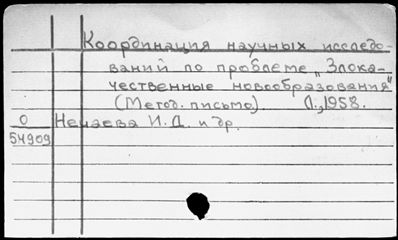 Координация научных исследо-
ваний по проблеме „Злока-
чественные новообразования"
(Метод. письмо) Л., 1958.
О Нечаева И. Д. и др.
54909